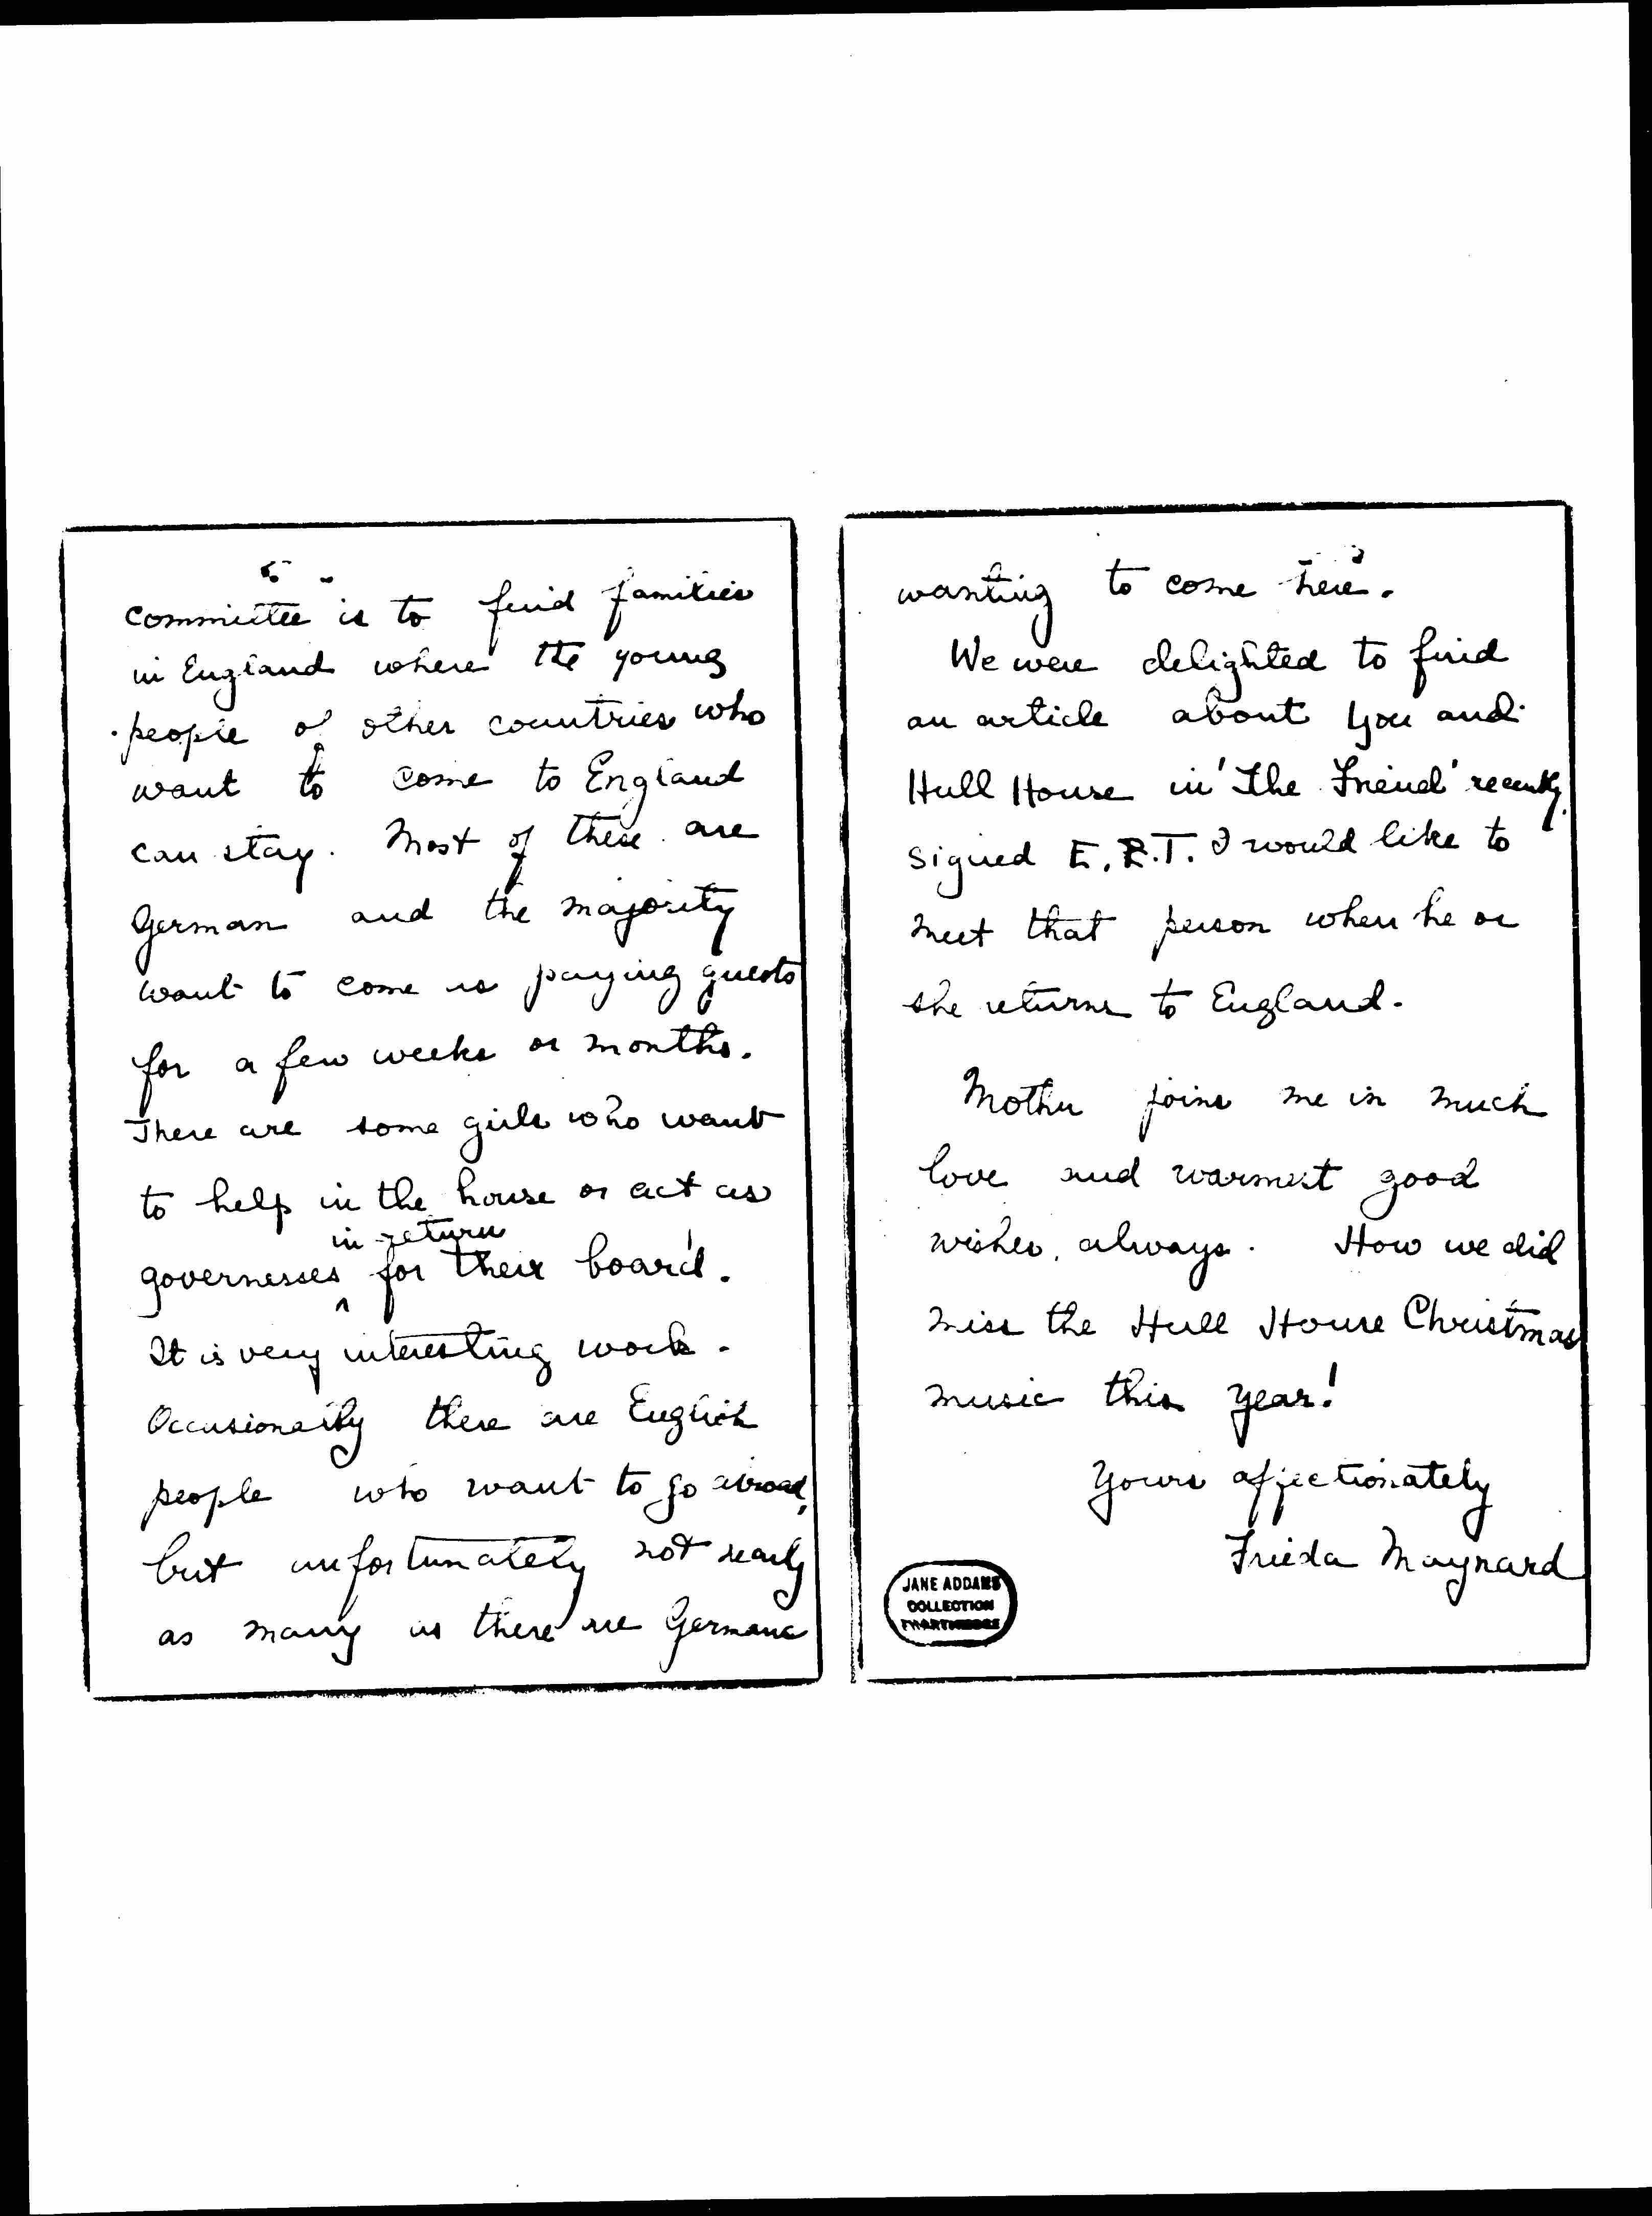 5
committee is to find families
in England where the young
people of other countries who
want to come to England
can stay. Most of these are
German and the majority
want to come as paying guests
for a few weeks or months.
There are some girls who want
to help in the house or act as
in return
governesses ^ for their board.
It is very interesting work.
Occasionally there are English
people who want to go abroad,
but unfortunately not nearly
as many as there are Germans
wanting to come here.
We were delighted to find
an article about you and
Hull House in 'The Friend' recently.
signed E.R.T. I would like to
meet that person when he or
she returns to England.
Mother joins me in much
love and warmest good
wishes, always. How we did
miss the Hull House Christmas
music this year!
Yours affectionately
Frieda Maynard
JANE ADDAMS
COLLECTION